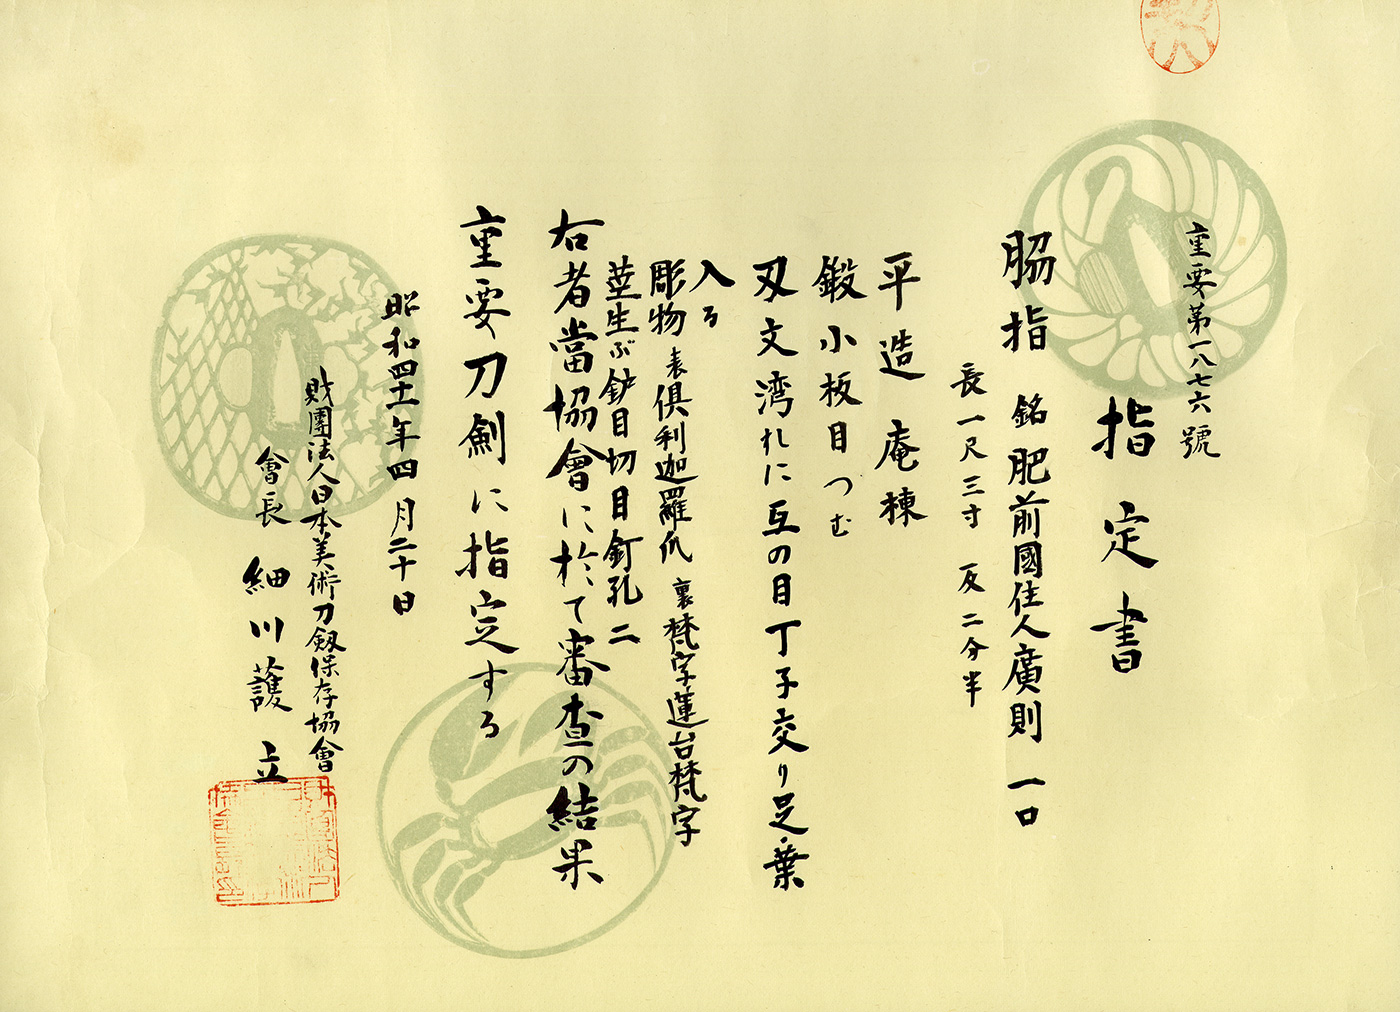 重要第一八七六號
指定書
脇指 銘 肥前國住人廣則 一口
長一尺三寸 反二分半
平造 庵棟
鍛小板目つむ
刃文湾れに互の目丁子交り足・葉
入る
彫物 表倶利迦羅爪 裏梵字蓮台梵字
茎生ぶ鈩目切目釘孔二
右者當協會に於て審査の結果
重要刀劍に指定する
昭和四十一年四月二十日
財團法人日本美術刀劔保存協會
會長 細川護立